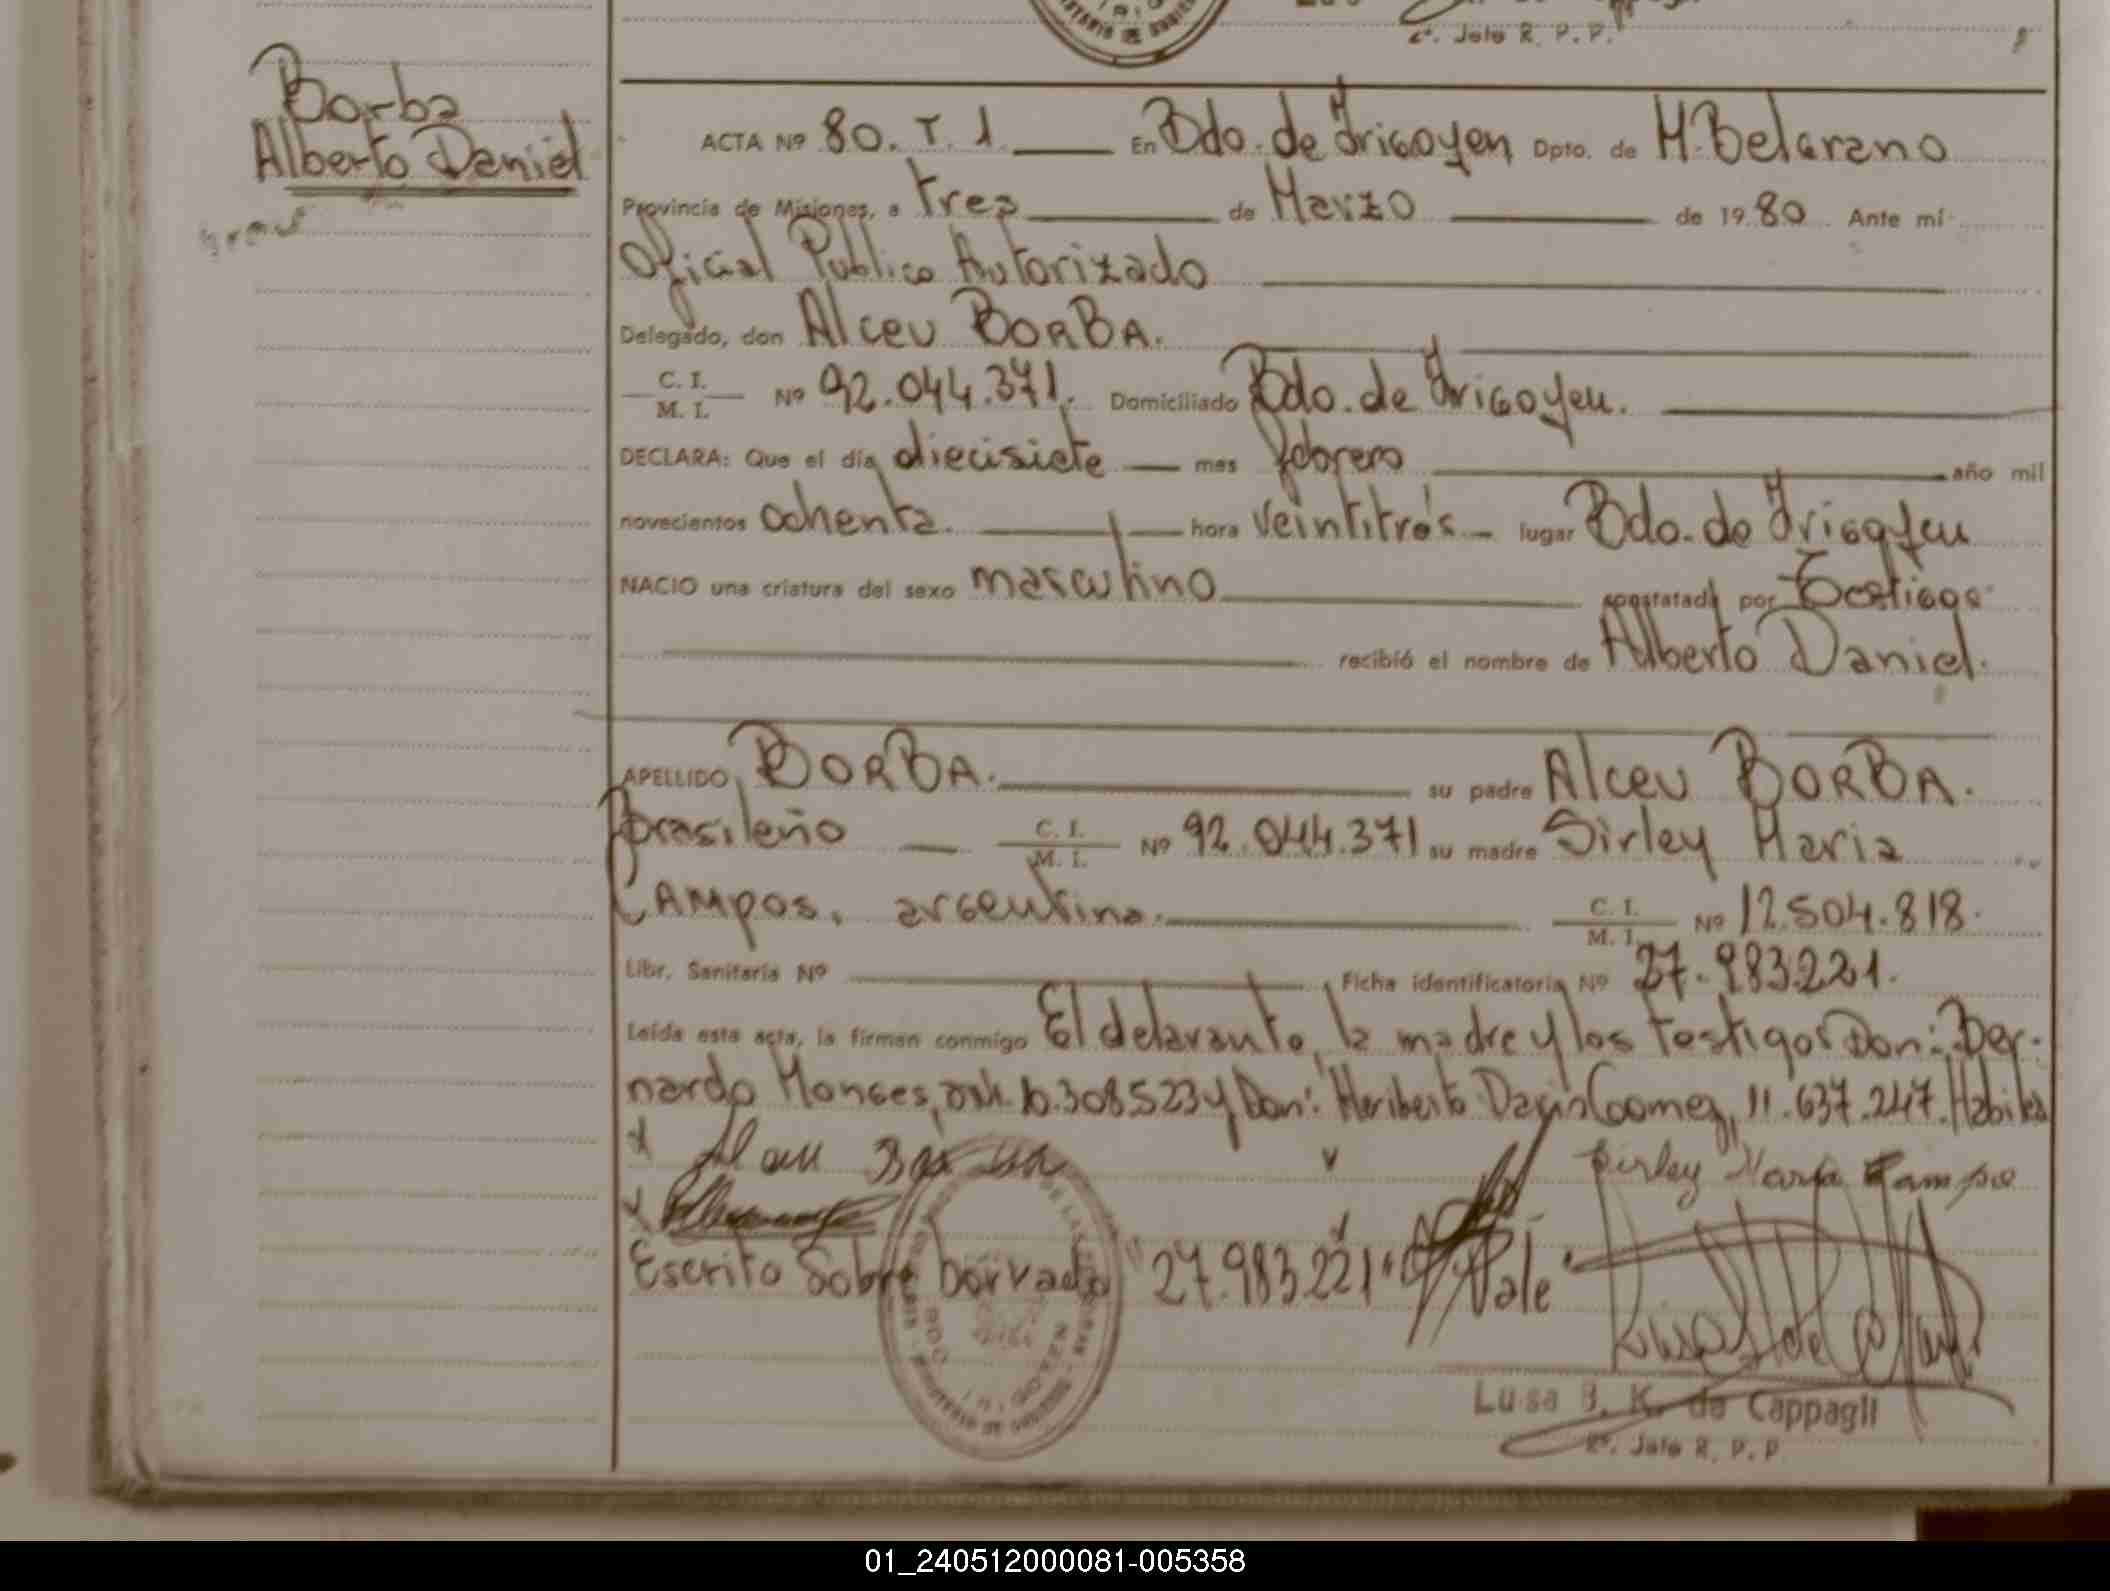 2º. Jefe R. P. P.
Borba
Alberto Daniel
ACTA Nº 80. T. 1 En Bdo. de Irigoyen Dpto. de M. Belgrano
Provincia de Misiones, a tres de Marzo de 1980 Ante mí
Oficial Público Autorizado
Delegado, don Alceu BORBA.
C. I. / M. I. Nº 92.044.371. Domiciliado Bdo. de Irigoyen.
DECLARA: Que el día diecisiete mes febrero año mil
novecientos ochenta. hora veintitrés lugar Bdo. de Irigoyen
NACIO una criatura del sexo masculino constatada por Testigos
recibió el nombre de Alberto Daniel.
APELLIDO BORBA. su padre Alceu BORBA.
brasileño C. I. / M. I. Nº 92.044.371 su madre Sirley Maria
CAMPOS, argentina. C. I. / M. I. Nº 12.504.818.
Libr. Sanitaria Nº Ficha identificatoria Nº 27.983.221.
Leída esta acta, la firman conmigo El delarante, la madre y los testigos Don: Ber-
nardo Monges, 10.308.523 y Don: Heriberto Gomez, 11.637.247. Habiles
Sirley Maria Campo
Escrito Sobre borrado "27.983.221" Vale
Luisa B. K. de Cappagli
2º. Jefe R. P. P.
01_240512000081-005358